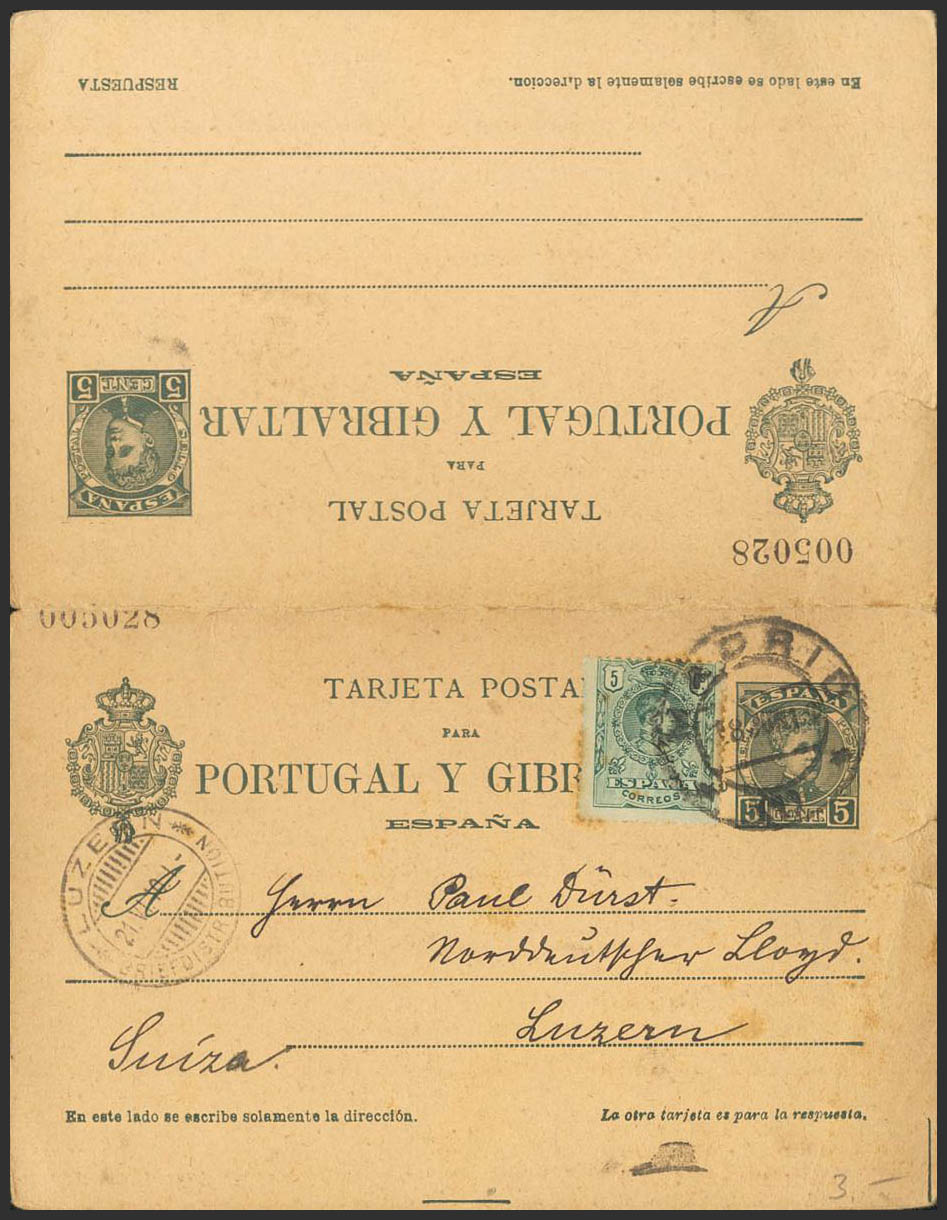 RESPUESTA
En este lado se escribe solamente la d,reccion.
A
ESPAÑA
PORTUGAL Y GIBRALTAR
PARA
TARJETA POSTAL
5 CENT. 5
ESPAÑA
005028
005028
TARJETA POSTA
PARA
PORTUGAL Y GIBR
ESPAÑA
5
ESPAÑA
CORREOS
ESPAÑA
5 CENT. 5
LUZERN
BRIEFDISTRIBUTION
A Herrn Paul Dürst.
Norddeutscher Lloyd.
Luzern
Suiza.
En este lado se escribe solamente la dirección.
La otra tarjeta es para la respuesta.
3.—